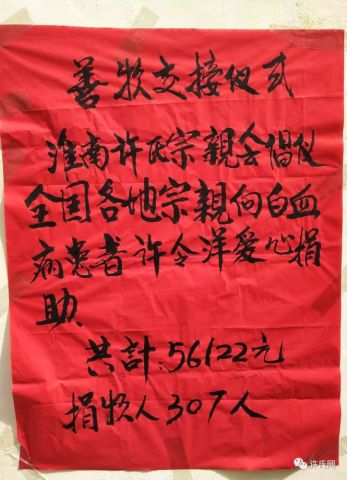 善款交接仪式
淮南许氏宗親会倡仪
全国各地宗親向白血
病患者许令洋爱心捐
助、
共計:56122元
捐款人307人
许氏网